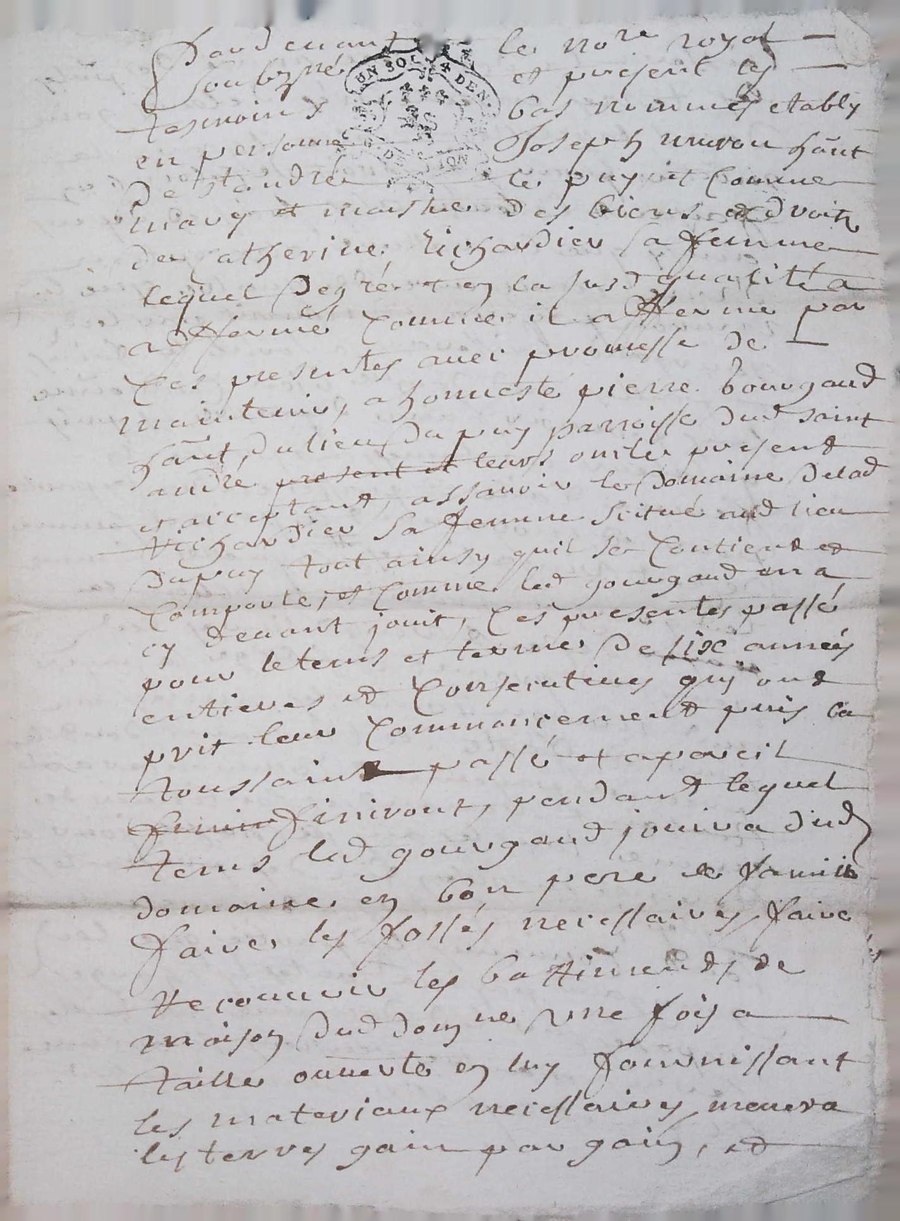 Pardevant le nore royal
Soubzné et present les
tesmoins bas nommés etably
en personne Joseph hãnt
de le puy it comme
mary et maistre des biens et droits
de Catherine Richardier sa femme
lequel de gré et en la susd qualitté a
affermé comme il afferme par
Ces presentes avec promesse de
maintenir, a honneste pierre gourgaud
hãnt du lieu du puy parroisse dud saint
andré present et leurs present
et acceptant, assavoir le Domaine delad
Richardier sa femme scitué aud lieu
Dupuy tout ainsy quil se Contient et
Comporte, et Comme led gourgaud en a
cy devant jouit, Ces presentes passé
pour le tems et terme De six années
entieres et Consecutives quy ont
prit leur Commancement puis la
toussaint passé et apareil
finiront, pendant lequel
tems led gourgaud jouira dud
domaine en bon pere de famille
faire les fossés necessaires, faire
Recouvrir les battiments de
maison dud domne une fois a
taille ouverte en luy fournissant
les materiaux necessaires, menera
les terres gain par gain, et
UN SOL DEN